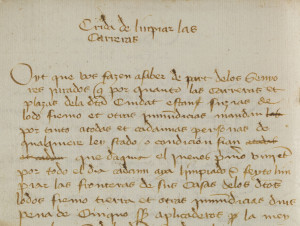 Crida de limpiar las
Carreras
Oyt que vos fazen asaber de part delos Senyo
res jurados q por quanto las carreras et
plaças dela dta Ciudat estan suzias de
lodo fiemo et otras inmundicias mandan
por tanto atodas et cadaunas personas de
qualquiere ley stado o condicion sian
que daqui el jueves primo vinient
por todo el dia cadaun aya limpiado et
piar las fronteras de sus Casas delos dtos
lodos fiemo tierra et otras inmundicias dius
pena de Cinquo ss aplicaderos por la